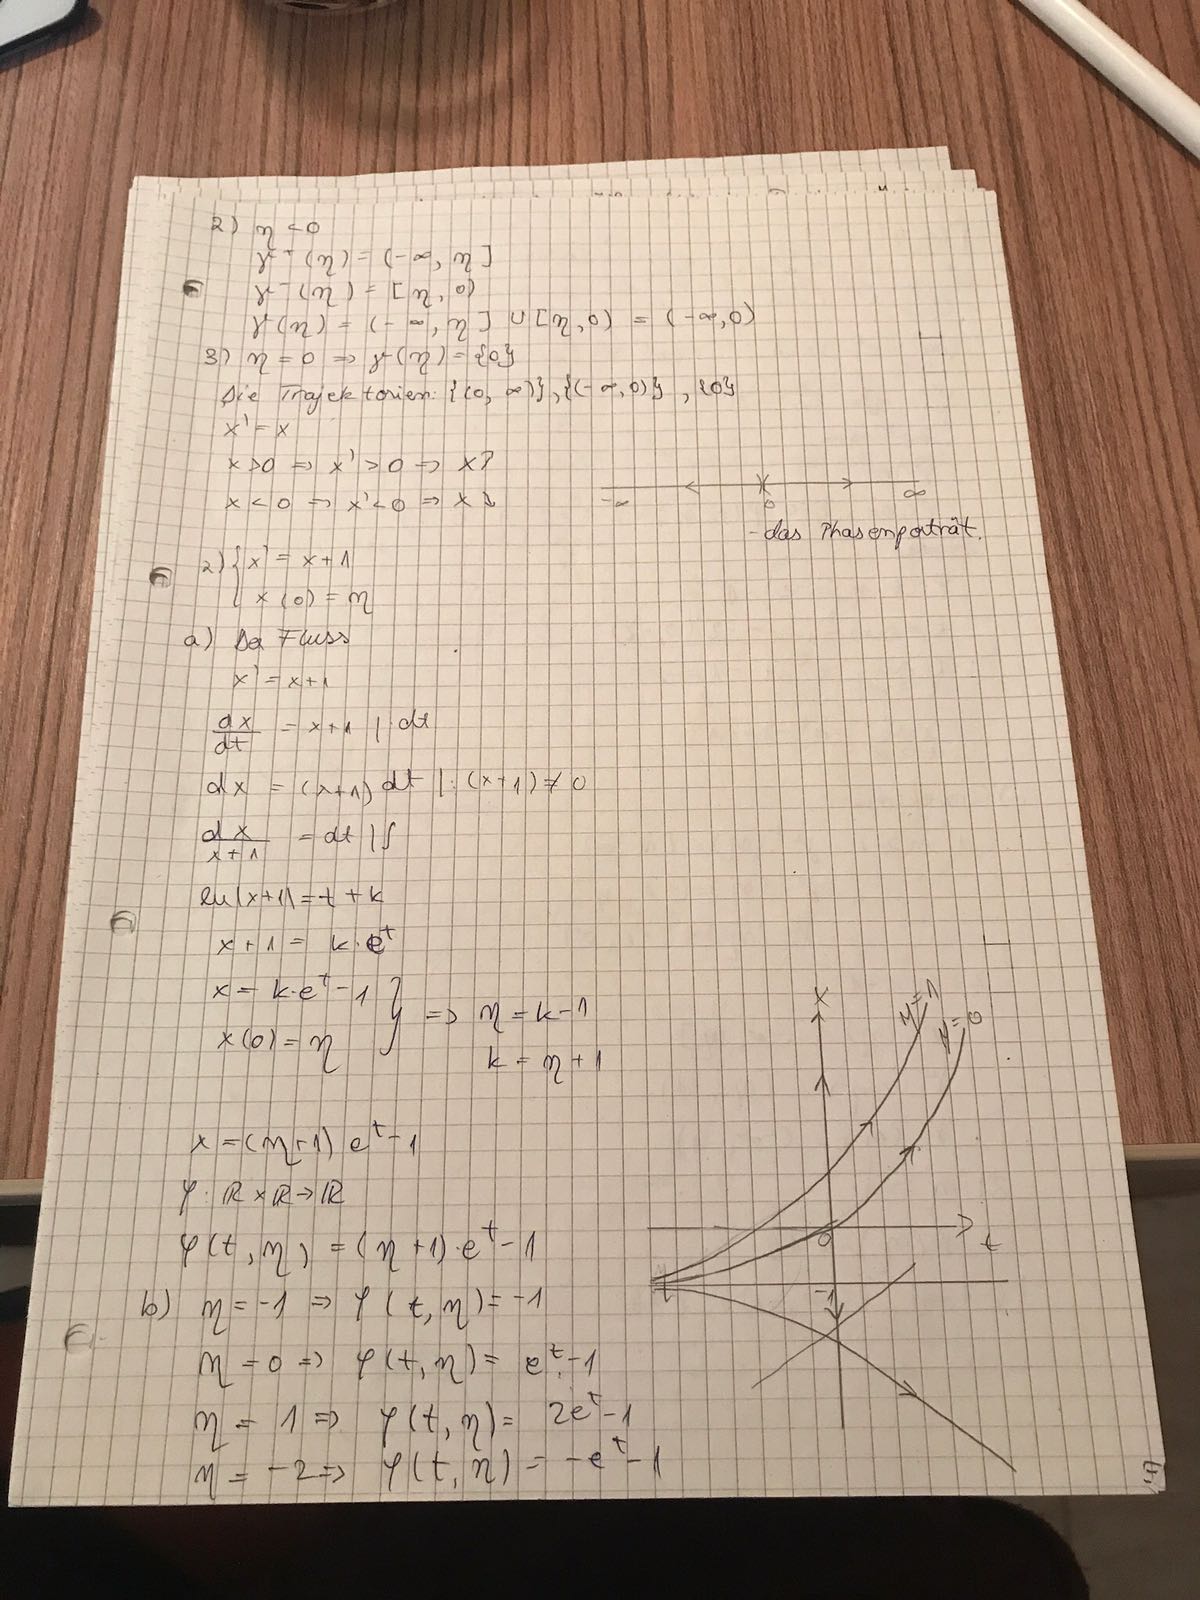 2) η < 0
γ⁺(η) = (-∞, η]
γ⁻(η) = [η, 0)
γ(η) = (-∞, η] ∪ [η, 0) = (-∞, 0)
3) η = 0 ⇒ γ(η) = {0}
Die Trajektorien: {(0, ∞)}, {(-∞, 0)}, {0}
x' = x
x > 0 ⇒ x' > 0 ⇒ x ↗
x < 0 ⇒ x' < 0 ⇒ x ↘
-∞ 0 ∞
- das Phasenporträt.
2) { x' = x + 1
x(0) = η
a) Der Fluss
x' = x + 1
dx/dt = x + 1 | · dt
dx = (x+1) dt | : (x+1) ≠ 0
dx/(x+1) = dt | ∫
ln|x+1| = t + k
x + 1 = k · e^t
x = k · e^t - 1
x(0) = η } ⇒ η = k - 1
k = η + 1
x = (η+1) e^t - 1
φ : ℝ × ℝ → ℝ
φ(t, η) = (η+1) · e^t - 1
b) η = -1 ⇒ φ(t, η) = -1
η = 0 ⇒ φ(t, η) = e^t - 1
η = 1 ⇒ φ(t, η) = 2e^t - 1
η = -2 ⇒ φ(t, η) = -e^t - 1
x
η = 1
η = 0
0
t
-1